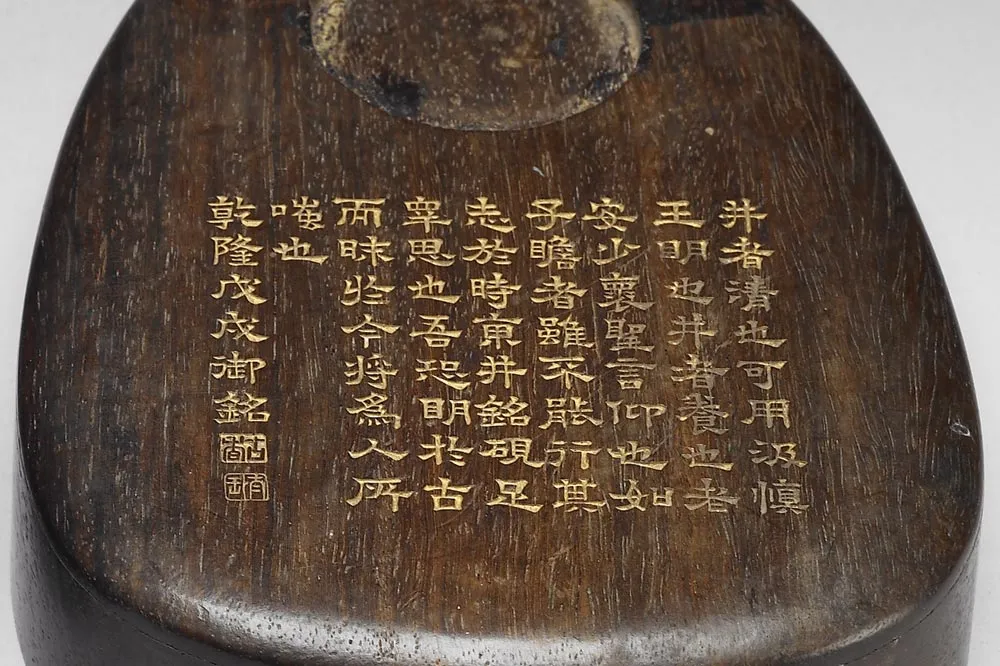 井者清也可用汲慎
王明也井者養也老
安少褱聖言仰也如
子瞻者雖不能行其
志於時東井銘硯足
覃思也吾恐明於古
而昧於今將爲人所
嗤也
乾隆戊戌御銘
古香